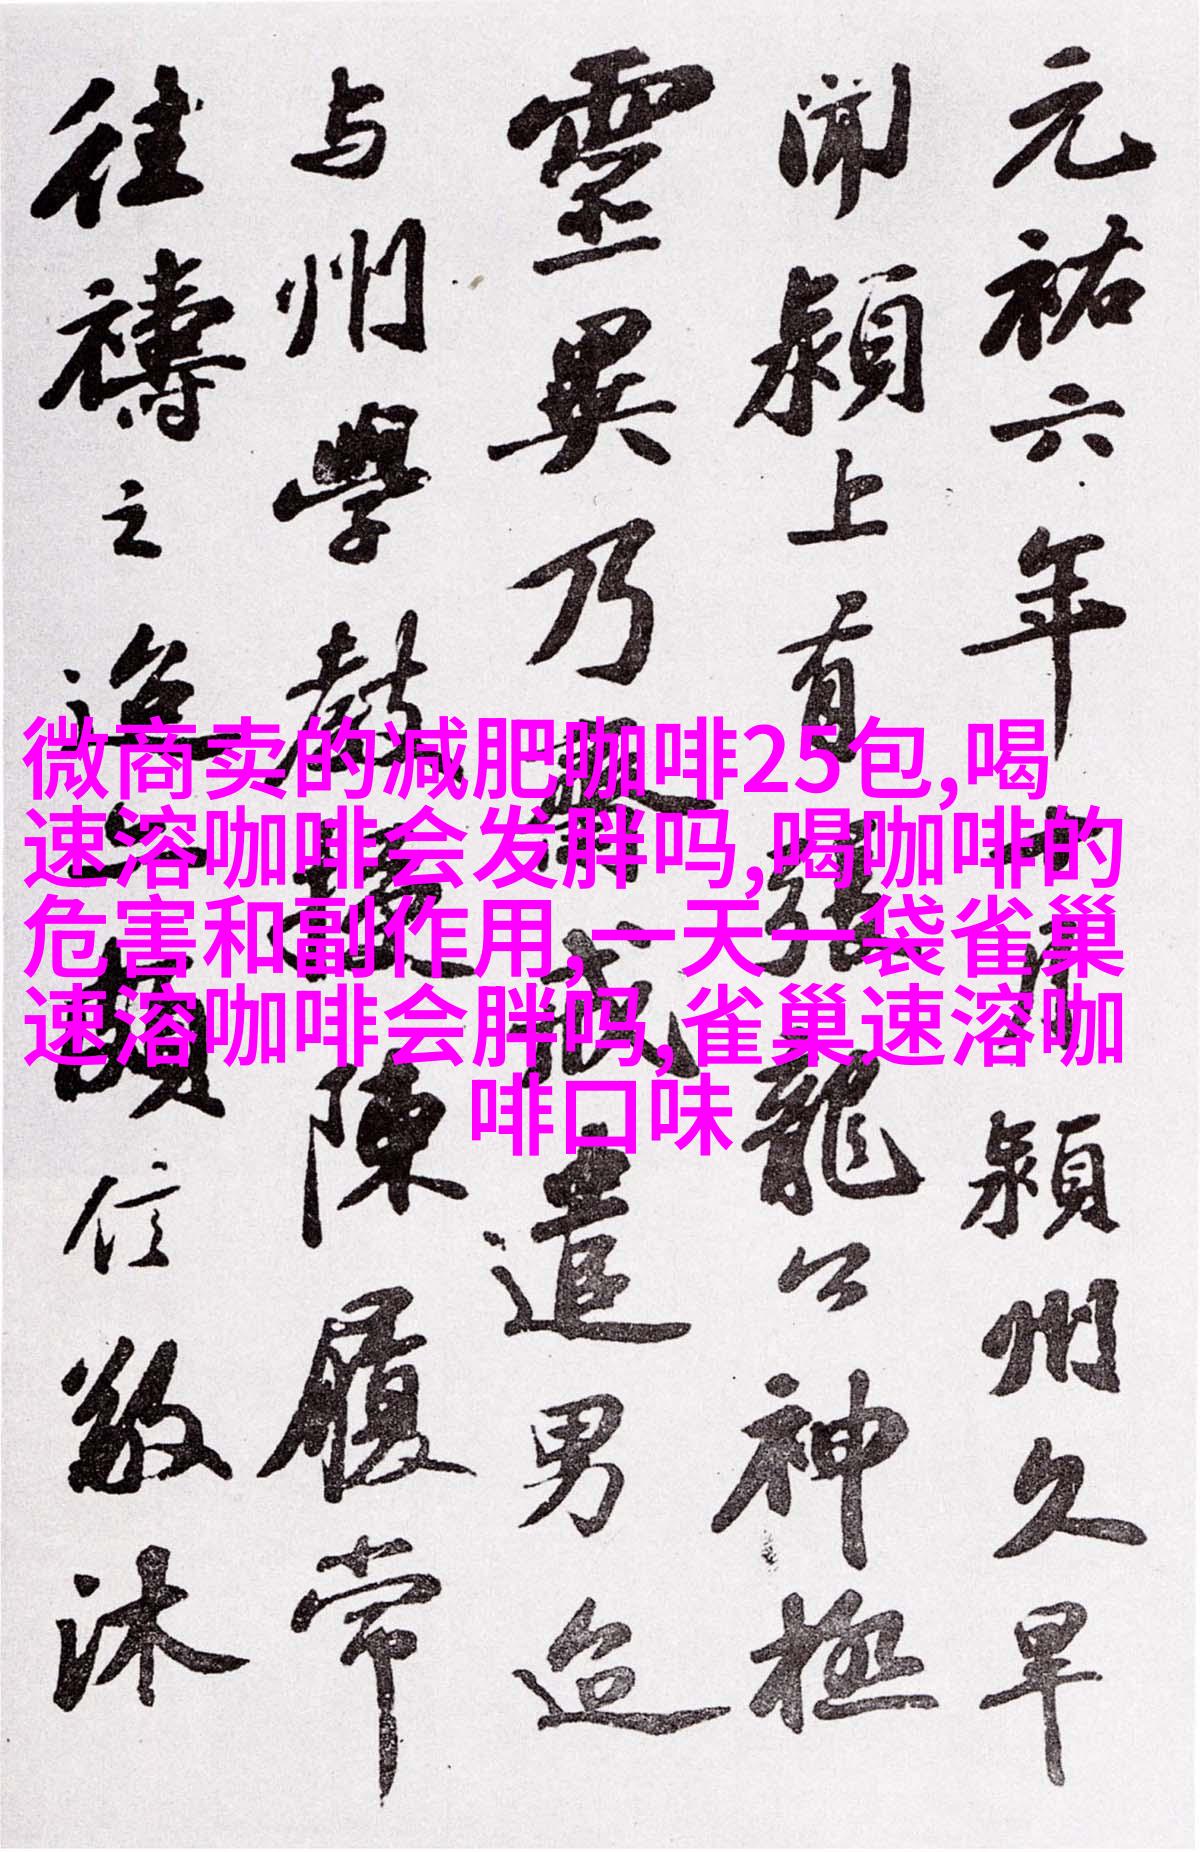 元祐六年十月潁州久旱
聞潁上有張龍公神極
靈異乃齋戒遣男迨
与州學教授陳履常
往禱之迨亦頗信敬沐
微商卖的减肥咖啡25包,喝
速溶咖啡会发胖吗,喝咖啡的
危害和副作用,一天一袋雀巢
速溶咖啡会胖吗,雀巢速溶咖
啡口味